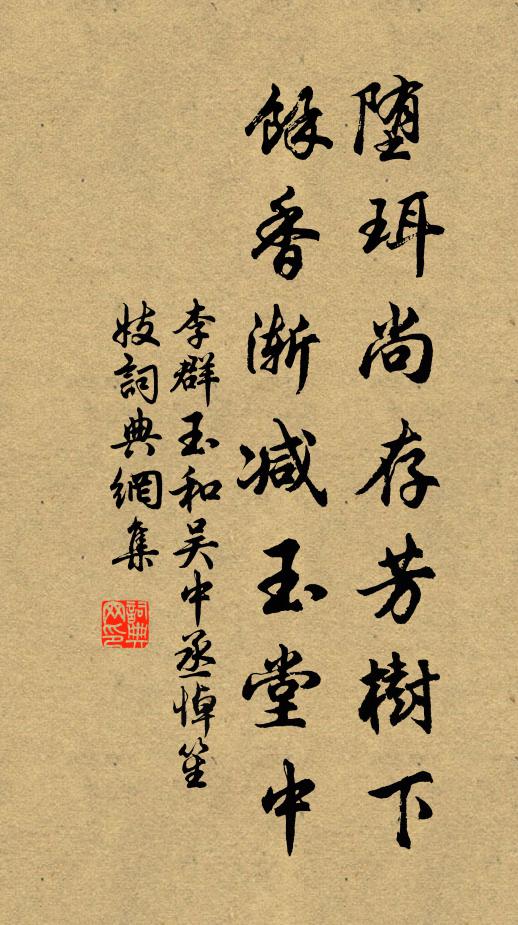 堕珥尚存芳樹下
餘香漸减玉堂中
李群玉和吴中丞悼笙
妓詞典網集
詞典网印